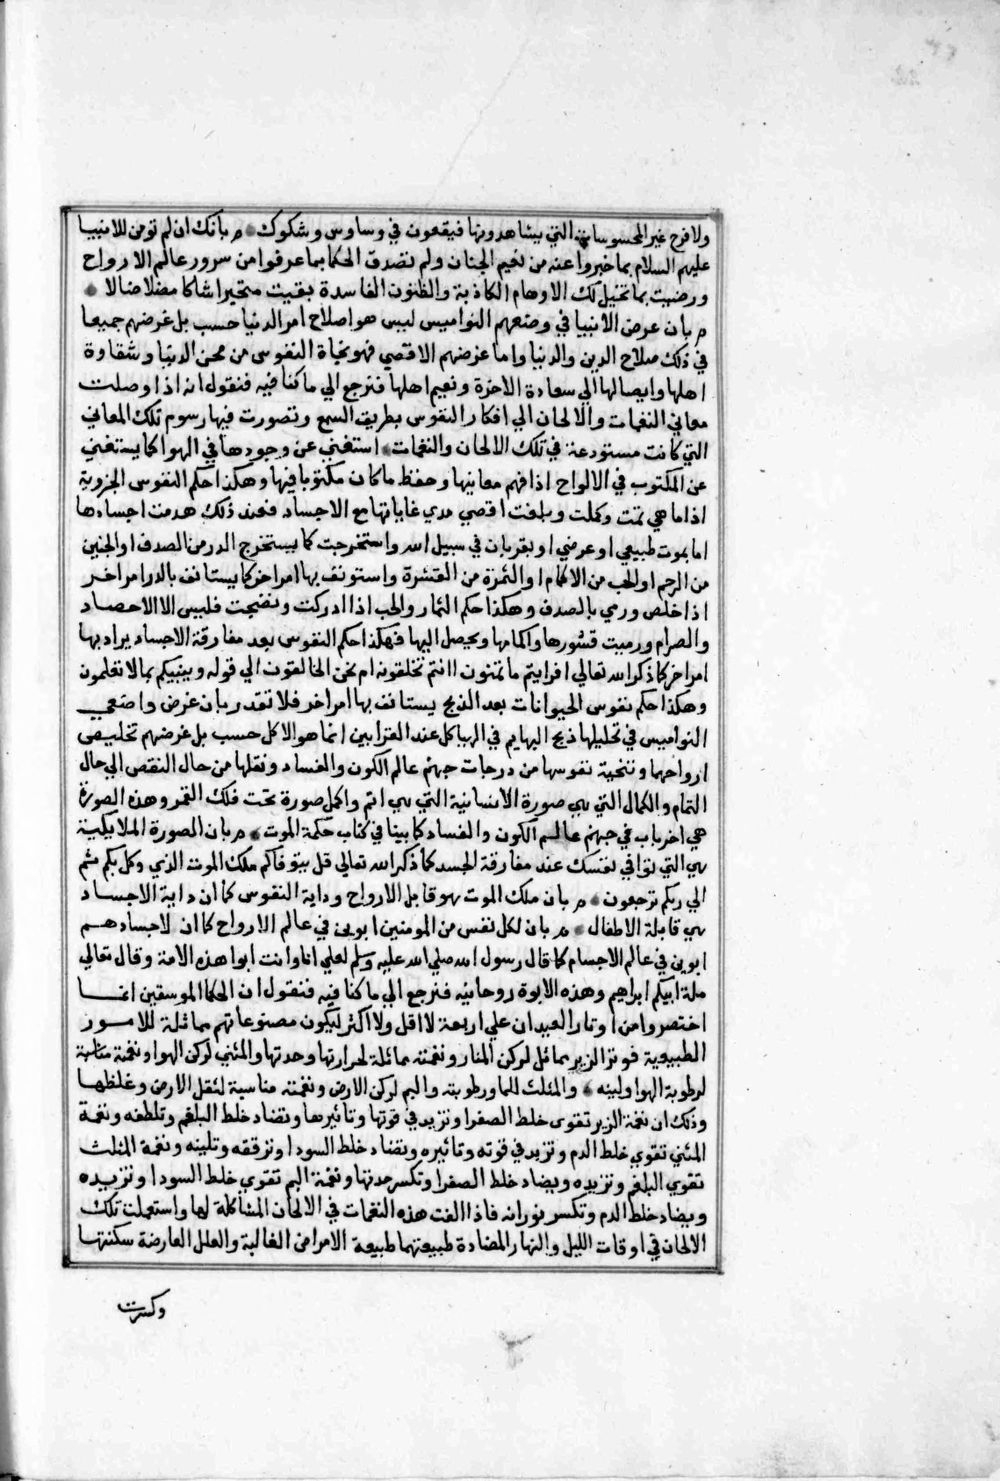 ولا فرح غير المحسوسات التي يشاهدونها فيقعون في وساوس وشكوك م بانك ان لم تومن للانبيا
عليهم السلام بما خبروا عنه من نعيم الجنان ولم تصدق الحكما بما عرفوا من سرور عالم الارواح
ورضيت بما تخيل لك الاوهام الكاذبة والظنون الفاسدة بقيت متحيرا شاكا مضلا ضالا
م بان غرض الانبيا في وضعهم النواميس ليس هو اصلاح امر الدنيا حسب بل غرضهم جميعا
في ذلك صلاح الدين والدنيا واما غرضهم الاقصي فهو نجاة النفوس من محن الدنيا وشقاوة
اهلها وايصالها الي سعادة الاخرة ونعيم اهلها فنرجع الي ما كنا فيه فنقول انه اذا وصلت
معاني النغمات والالحان الي افكار النفوس بطريق السمع وتصورت فيها رسوم تلك المعاني
التي كانت مستودعة في تلك الالحان والنغمات استغني عن وجودها في الهوا كما يستغني
عن المكتوب في الالواح اذا فهم معانيها وحفظ ما كان مكتوبا فيها وهكذا حكم النفوس الجزوية
اذا ما هي تمت وكملت وبلغت اقصي مدي غاياتها مع الاجساد فعند ذلك هدمت اجسادها
اما بموت طبيعي او عرضي او بقربان في سبيل الله واستخرجت كما يستخرج الدر من الصدف او الجنين
من الرحم او الحب من الاكمام او الثمرة من القشرة واستونف بها امر اخر كما يستانف بالدر امر اخر
اذا خلص ورمي بالصدف وهكذا حكم الثمار والحب اذا ادركت ونضجت فليس الا الاحصاد
والصرام ورميت قشورها واكمامها ويحصل اليها فهكذا حكم النفوس بعد مفارقة الاجساد يراد بها
امر اخر كما ذكر الله تعالي افرايتم ما تمنون اانتم تخلقونه ام نحن الخالقون الي قوله وينبيكم بما لا تعلمون
وهكذا حكم نفوس الحيوانات بعد الذبح يستانف بها امر اخر فلا تقدر بان غرض واضعي
النواميس في تحليلها ذبح البهايم في الهياكل عند القرابين انما هو الاكل حسب بل غرضهم تخليص
ارواحها وتنحية نفوسها من درجات جهنم عالم الكون والفساد ونقلها من حال النقص الي حال
التمام والكمال التي هي صورة الانسانية التي هي اتم واكمل صورة تحت فلك القمر وهذه الصورة
هي اخر باب في جهنم عالم الكون والفساد كما بينا في كتاب حكمة الموت م بان الصورة الملايكية
هي التي توافي نفسك عند مفارقة الجسد كما ذكر الله تعالي قل يتوفاكم ملك الموت الذي وكل بكم ثم
الي ربكم ترجعون م بان ملك الموت هو قابل الارواح وداية النفوس كما ان داية الاجساد
هي قابلة الاطفال م بان لكل نفس من المومنين ابوين في عالم الارواح كما ان لاجسادهم
ابوين في عالم الاجسام كما قال رسول الله صلي الله عليه وسلم لعلي انا وانت ابوا هذه الامة وقال تعالي
ملة ابيكم ابراهيم وهذه الابوة روحانيه فنرجع الي ما كنا فيه فنقول ان الحكما الموسقين انما
اختصروا من اوتار العيدان علي اربعة لا اقل ولا اكثر ليكون مصنوعاتهم مماثلة للامور
الطبيعية فوتر الزير مماثل لركن النار ونغمته مماثلة لحرارتها وحدتها والمثني لركن الهوا ونغمته مناسبة
لرطوبة الهوا ولينه والمثلث للما ورطوبته والبم لركن الارض ونغمته مناسبة لثقل الارض وغلظها
وذلك ان نغمة الزير تقوي خلط الصفرا وتزيد في قوتها وتاثيرها وتضاد خلط البلغم وتلطفه ونغمة
المثني تقوي خلط الدم وتزيد في قوته وتاثيره وتضاد خلط السودا وترققه وتلينه ونغمة المثلث
تقوي البلغم وتزيده ويضاد خلط الصفرا وتكسر حدتها ونغمة البم تقوي خلط السودا وتزيده
ويضاد خلط الدم وتكسر فورانه فاذا الفت هذه النغمات في الالحان المشاكلة لها واستعملت تلك
الالحان في اوقات الليل والنهار المضادة طبيعتهما طبيعة الامراض الغالبة والعلل العارضة سكنتها
وكسرت